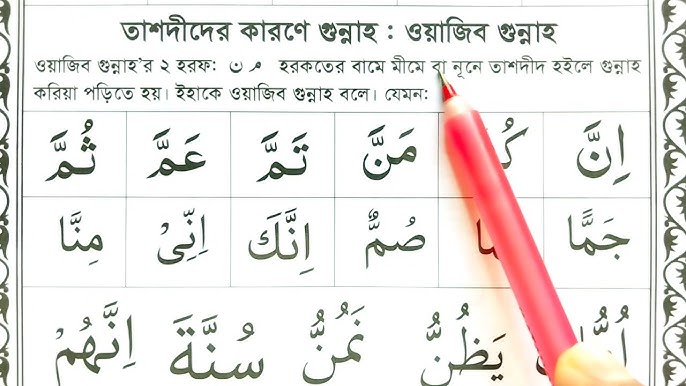 তাশদীদের কারণে গুন্নাহ : ওয়াজিব গুন্নাহ
ওয়াজিব গুন্নাহ'র ২ হরফ: م ن হরকতের বামে মীমে বা নূনে তাশদীদ হইলে গুন্নাহ
করিয়া পড়িতে হয়। ইহাকে ওয়াজিব গুন্নাহ বলে। যেমন:
اِنَّ مَنَّ تَمَّ عَمَّ ثُمَّ
جَمًّا صُمٌّ اِنَّكَ اِنِّىْ مِنَّا
يَظُنُّ نَمُنُّ سُنَّةَ اِنَّهُمْ